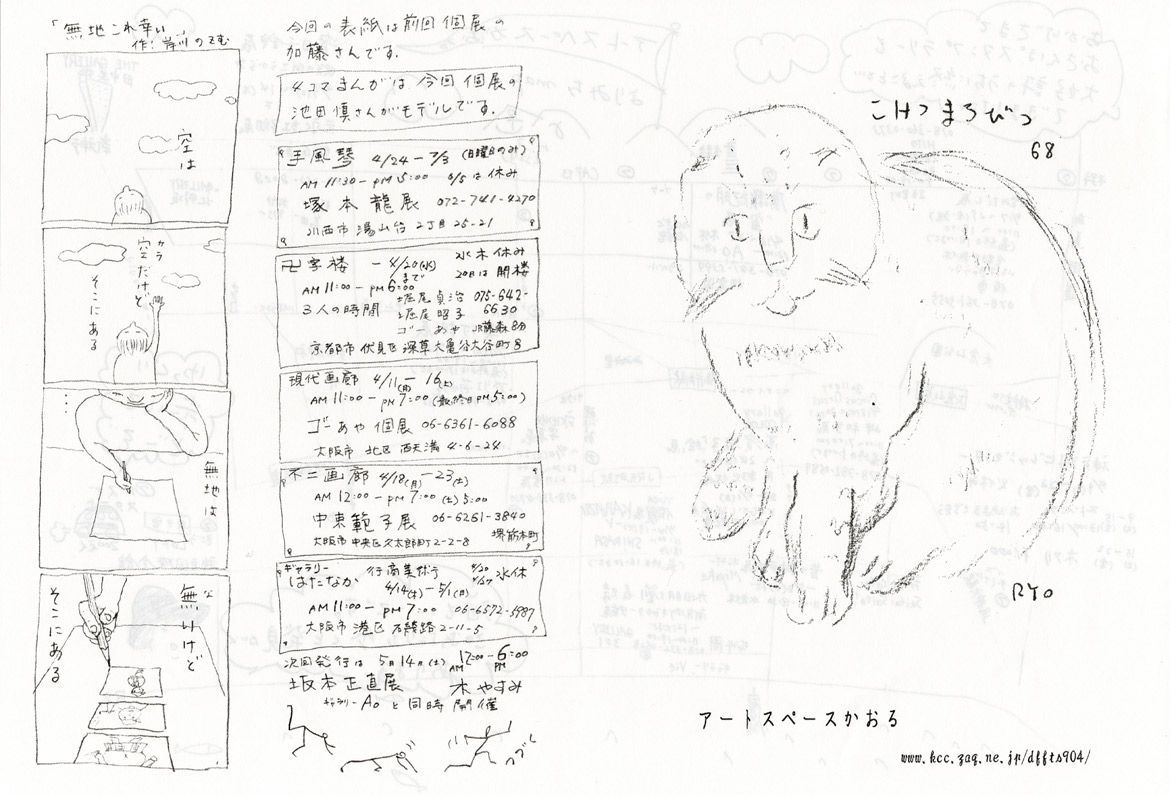 「無地これ幸い」
作：岸川のぞむ
空は
カラ
空だけど
そこにある
…
無地は
な
無いけど
そこにある
今回の表紙は前回個展の
加藤さんです.
4コマまんがは、今回個展の
池田慎さんがモデルです.
手風琴 4/24－7/3 (日曜日のみ)
AM 11:30－PM 5:00 6/5は休み
塚本龍展 072-741-4270
川西市湯山台2丁目25-21
卍字楼 －4/20(水)まで 水木休み
20日は開楼
AM 11:00－PM 6:00
3人の時間 堀尾貞治 075-642-6630
堀尾昭子
ゴーあや JR藤森8分
京都市伏見区深草大亀谷大谷町8
現代画廊 4/11(月)－16(土)
AM 11:00－PM 7:00 (最終日PM 5:00)
ゴーあや個展 06-6361-6088
大阪市 北区 西天満 4-6-24
不二画廊 4/18(月)－23(土)
AM 12:00－PM 7:00 (土) 5:00
中東範子展 06-6261-3840
大阪市中央区久太郎町2-2-8 堺筋本町
ギャラリー
はたなか 行商美術 4/20 4/27 水休
4/14(木)－5/1(日)
AM 11:00－PM 7:00 06-6572-5987
大阪市港区 2-11-5
次回発行は 5月14日(土) AM 12:00－6:00 PM
坂本正直展 木やすみ
ギャラリーAoと同時開催
つづく
こけつまろびつ
68
RYO
アートスペースかおる
www.kcc.zaq.ne.jp/dffts904/